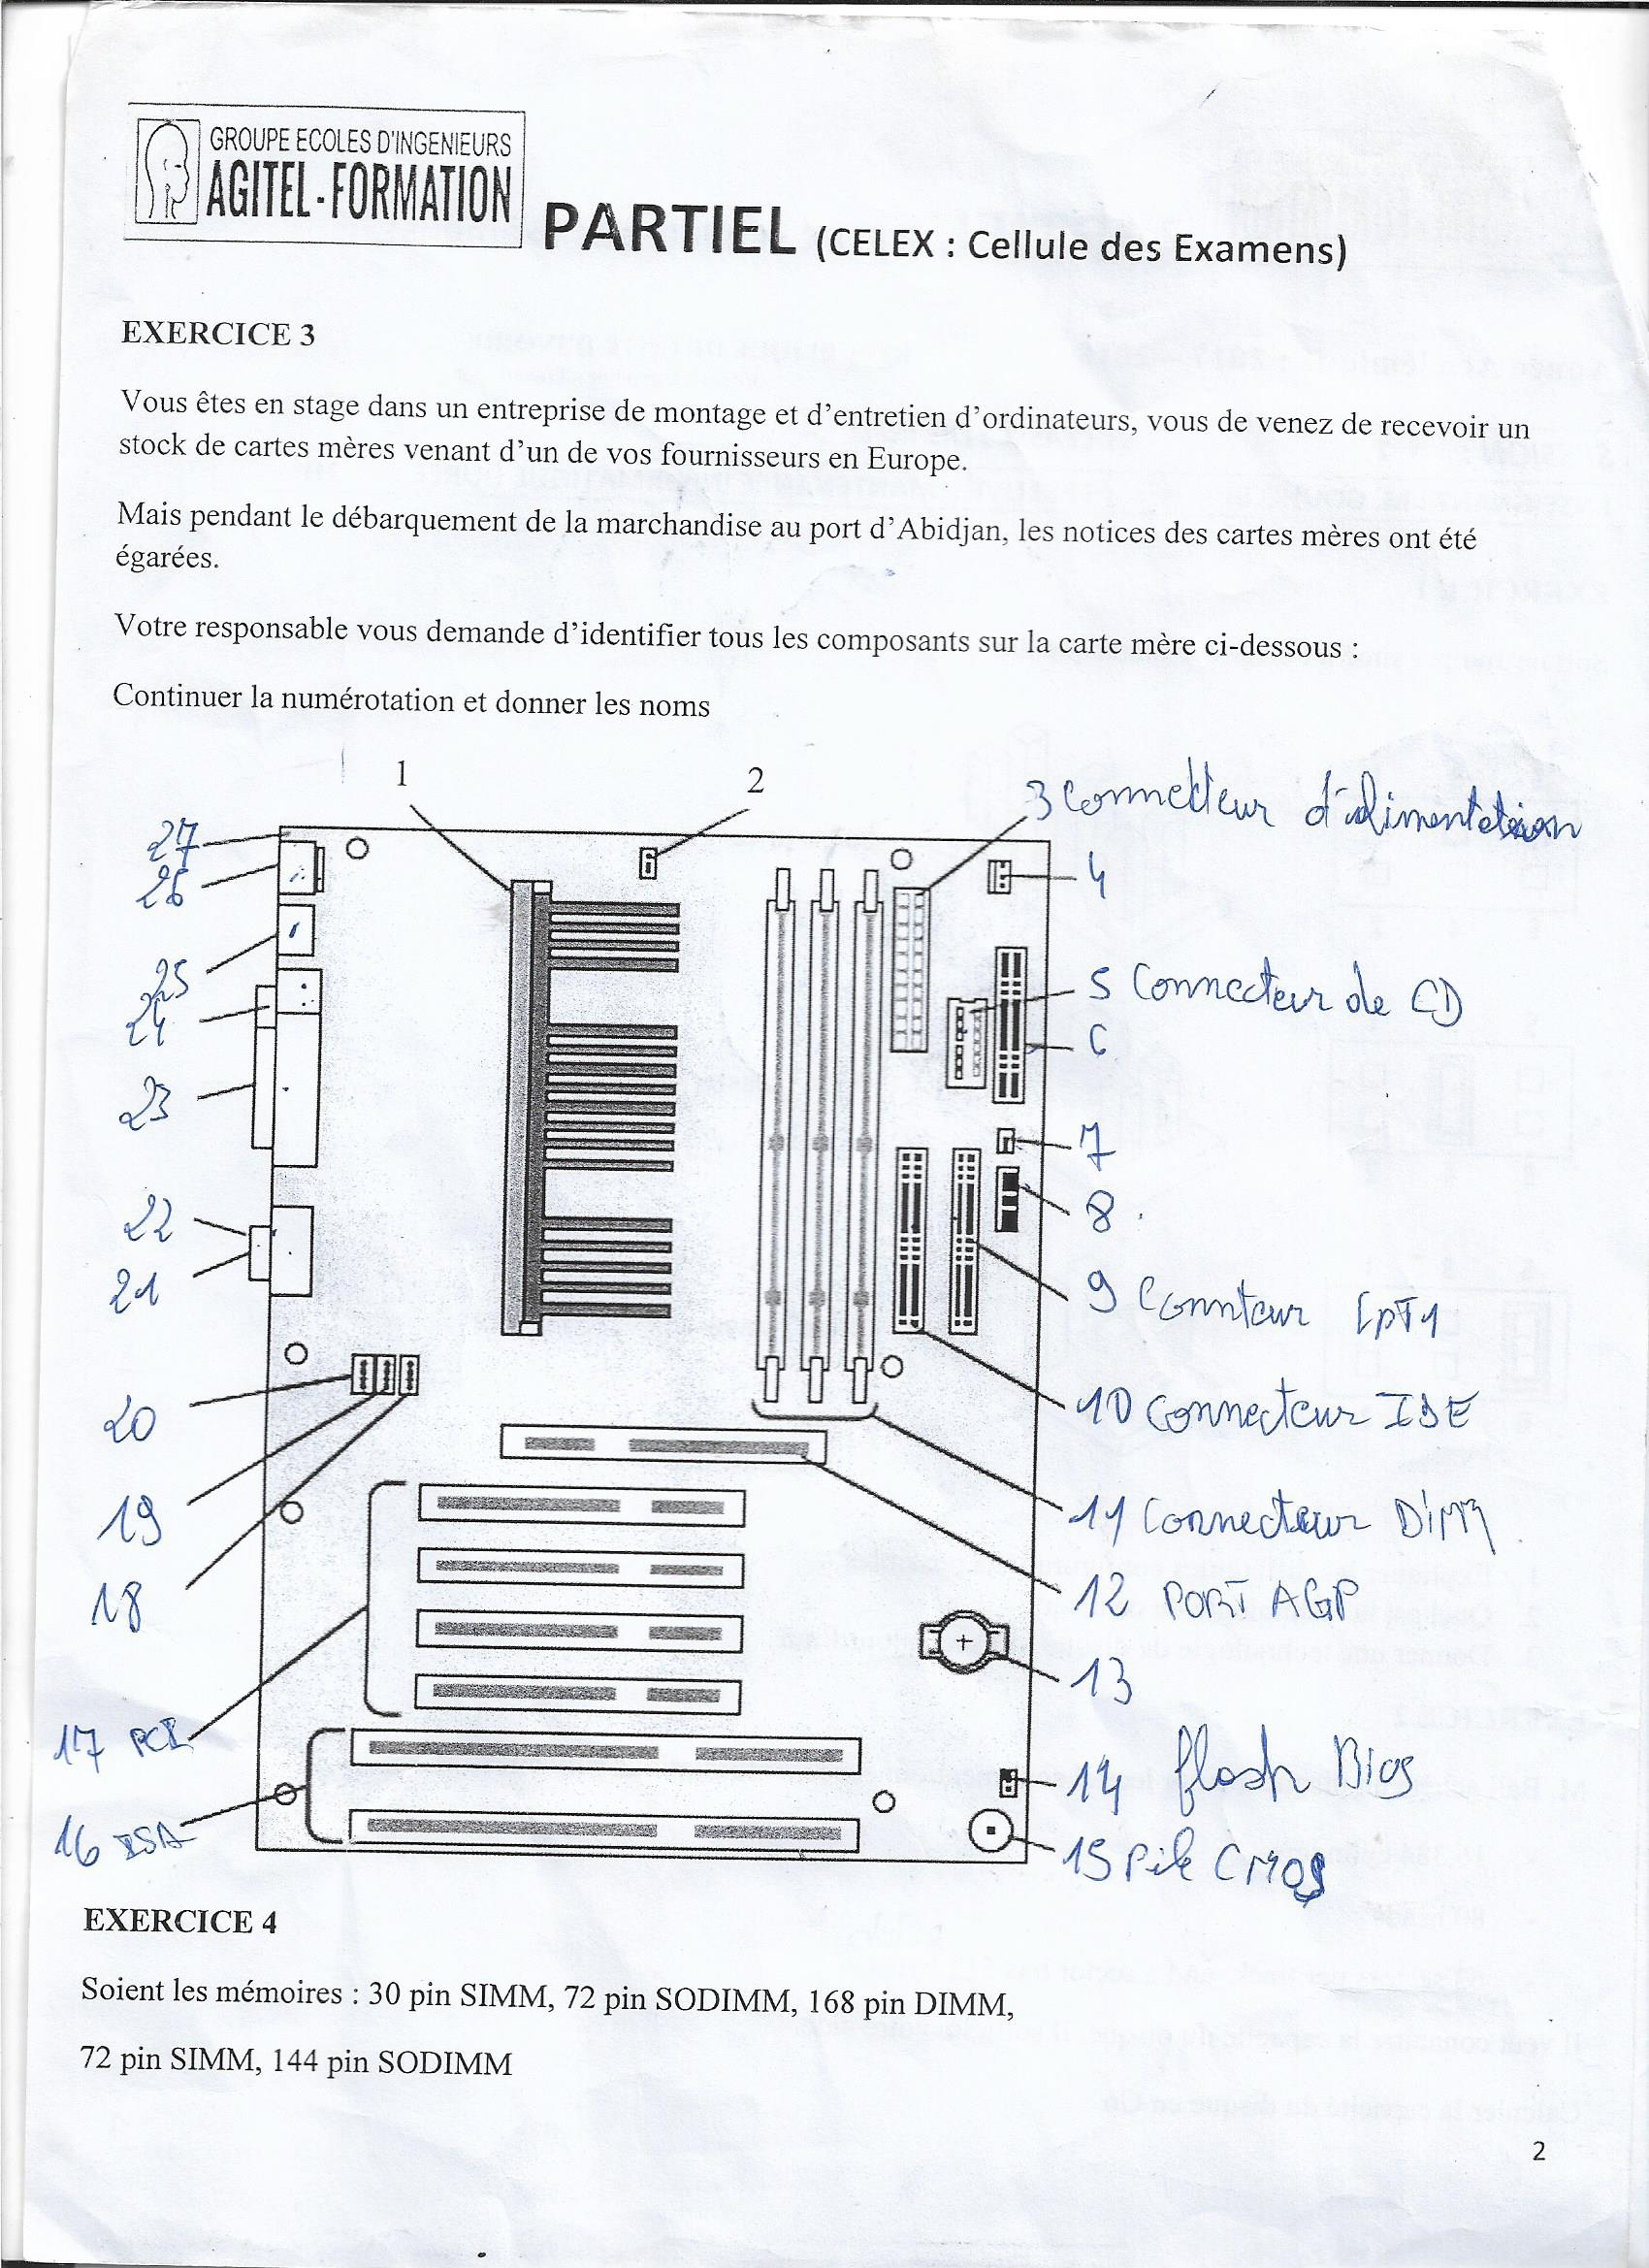 GROUPE ECOLES D'INGENIEURS
AGITEL-FORMATION
PARTIEL (CELEX : Cellule des Examens)
EXERCICE 3
Vous êtes en stage dans un entreprise de montage et d'entretien d'ordinateurs, vous de venez de recevoir un
stock de cartes mères venant d'un de vos fournisseurs en Europe.
Mais pendant le débarquement de la marchandise au port d'Abidjan, les notices des cartes mères ont été
égarées.
Votre responsable vous demande d'identifier tous les composants sur la carte mère ci-dessous :
Continuer la numérotation et donner les noms
1
2
3 Connecteur d'alimentation
27
26
4
25
24
5 Connecteur de CD
6
23
7
22
8
21
9 Connteur LPT1
20
10 Connecteur IDE
19
11 Connecteur DiMM
18
12 PORT AGP
13
17 PCI
14 flash Bios
16 ISA
15 Pile CMOS
EXERCICE 4
Soient les mémoires : 30 pin SIMM, 72 pin SODIMM, 168 pin DIMM,
72 pin SIMM, 144 pin SODIMM
2